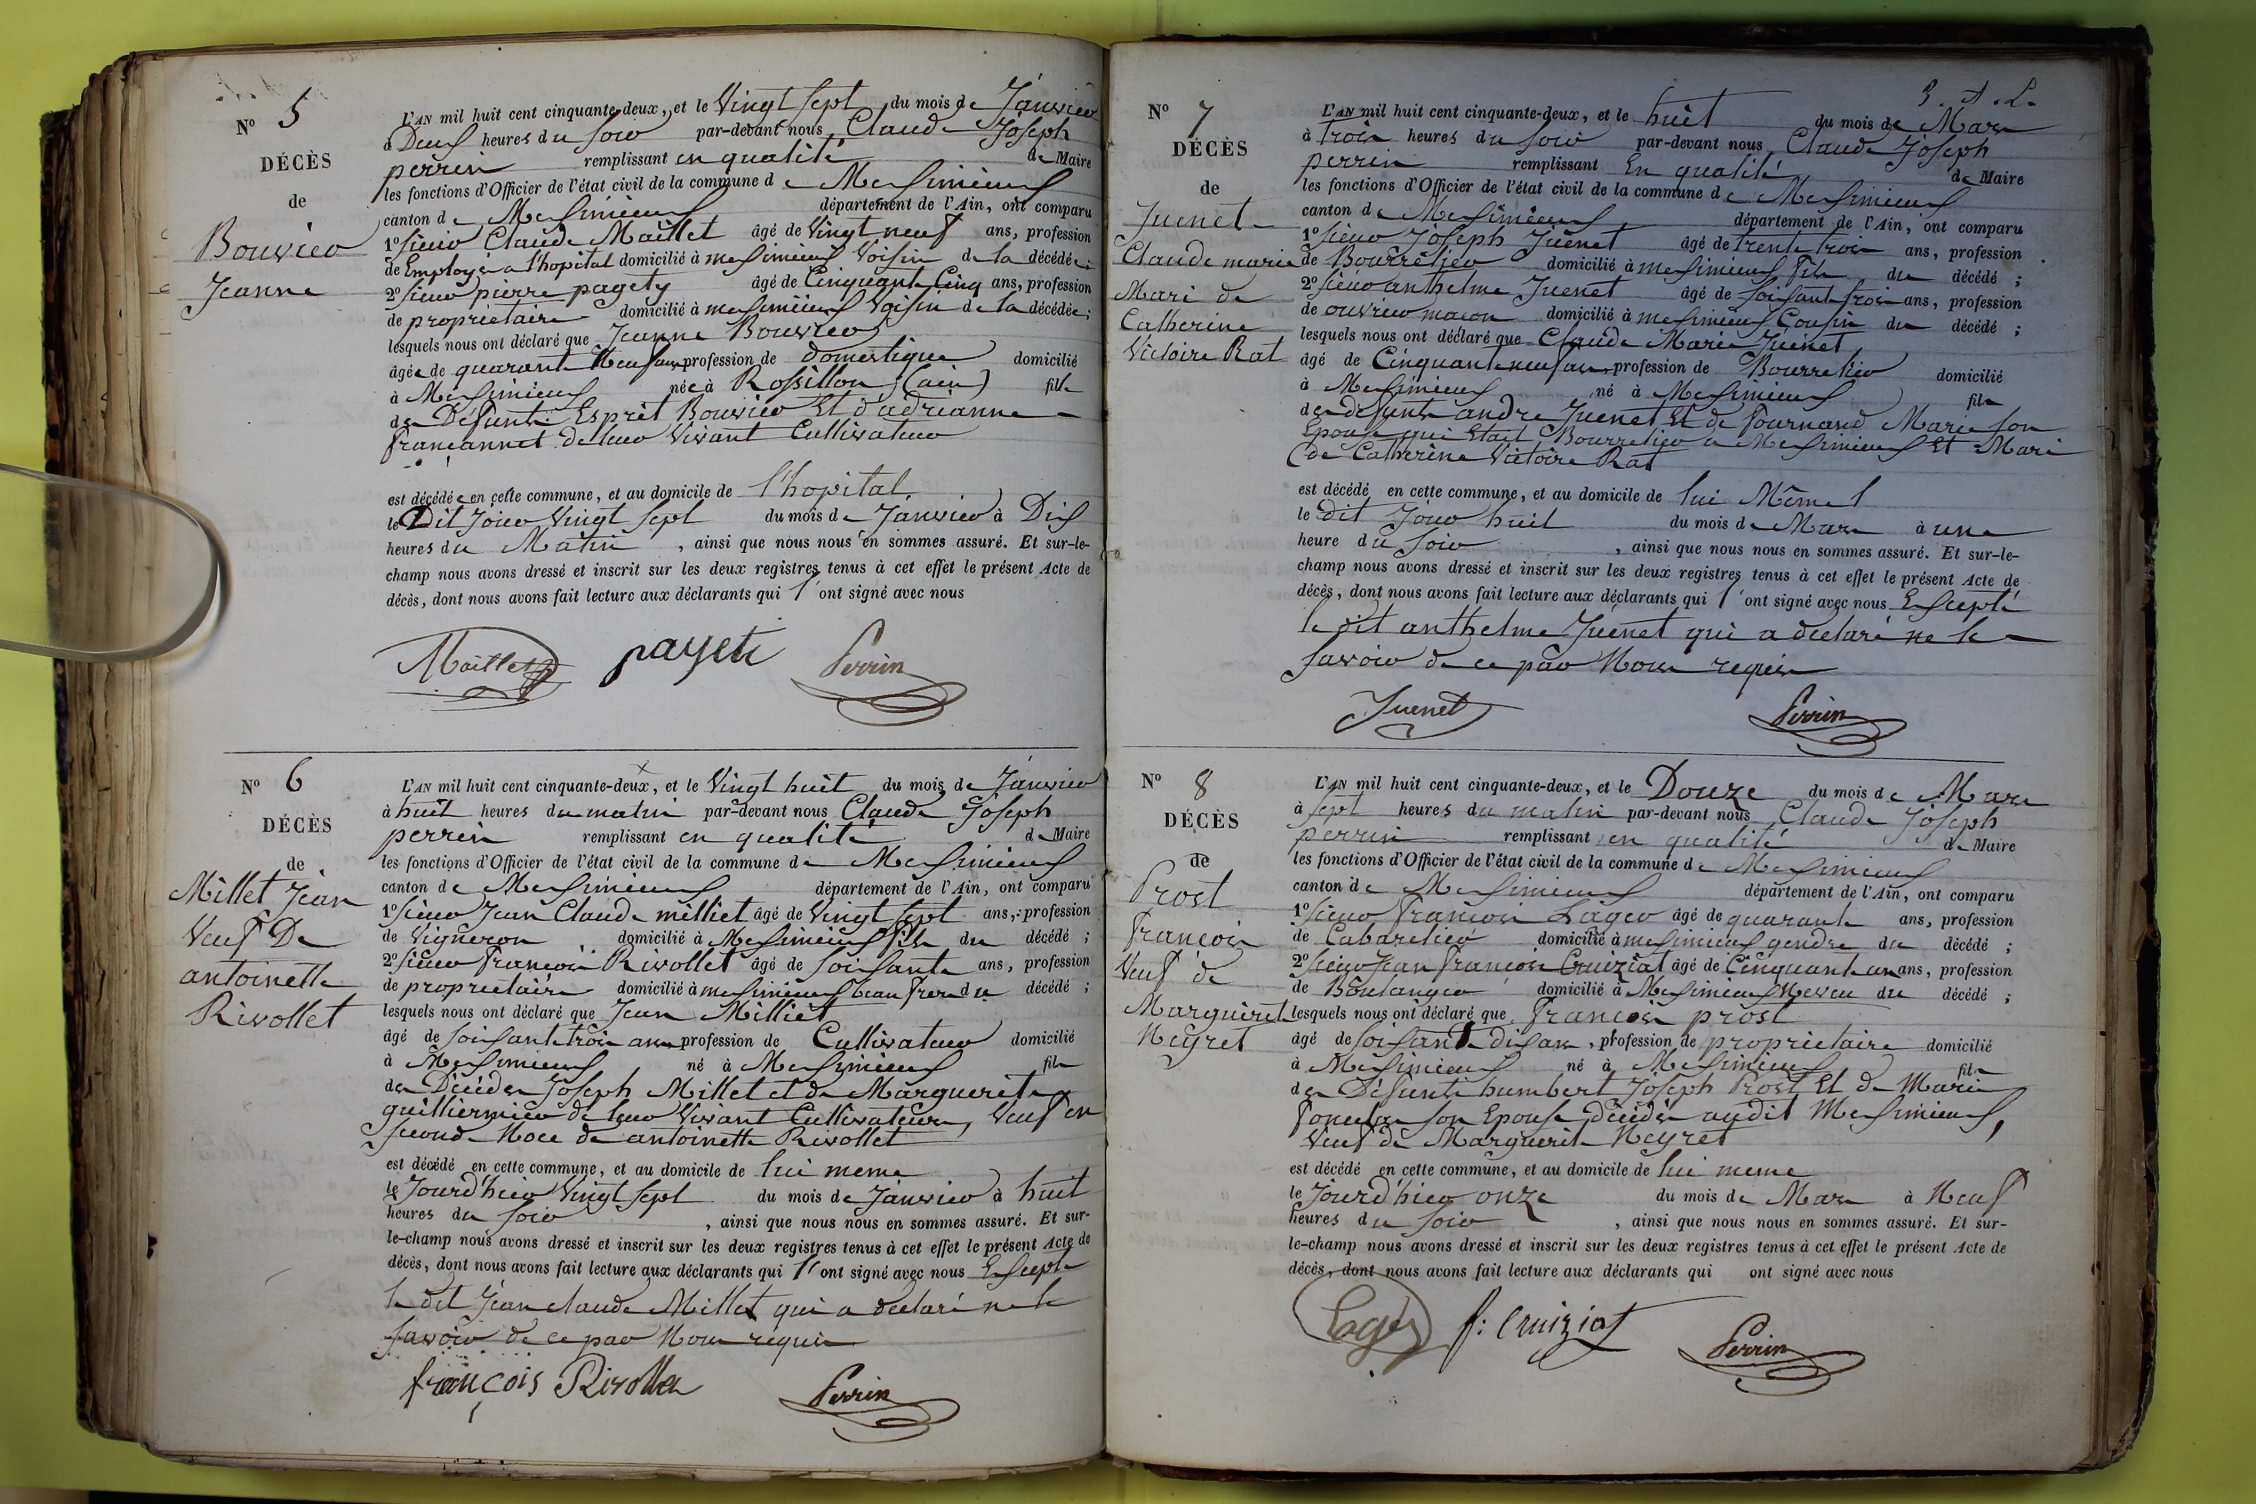 N° 5
DÉCÈS
de
Bouvier
Jeanne
L'AN mil huit cent cinquante-deux, et le Vingt Sept du mois de Janvier
à Deux heures du soir par-devant nous Claude Joseph
perrin remplissant en qualité de Maire
les fonctions d'Officier de l'état civil de la commune de Meximieux
canton de Meximieux département de l'Ain, ont comparu
1° sieur Claude Maillet âgé de Vingt neuf ans, profession
de Employé a l'hopital domicilié à meximieux Voisin de la décédée;
2° sieur pierre pagety âgé de Cinquante Cinq ans, profession
de proprietaire domicilié à meximieux Voisin de la décédée;
lesquels nous ont déclaré que Jeanne Bouvier
âgée de quarante Neuf ans profession de domestique domicilié
à Meximieux née à Rossillon (ain) fille
des Défunts Esprit Bouvier Et d'adrianne
francannet de leur Vivant Cultivateur
est décédée en cette commune, et au domicile de l'hopital
le Dit Jour Vingt Sept du mois de Janvier à Dix
heures du Matin, ainsi que nous nous en sommes assuré. Et sur-le-
champ nous avons dressé et inscrit sur les deux registres tenus à cet effet le présent Acte de
décès, dont nous avons fait lecture aux déclarants qui l'ont signé avec nous
Maillet payeti Perrin
N° 6
DÉCÈS
de
Millet Jean
Veuf De
antoinette
Rivollet
L'AN mil huit cent cinquante-deux, et le Vingt huit du mois de Janvier
à huit heures du matin par-devant nous Claude Joseph
perrin remplissant en qualité de Maire
les fonctions d'Officier de l'état civil de la commune de Meximieux
canton de Meximieux département de l'Ain, ont comparu
1° sieur Jean Claude milliet âgé de Vingt Sept ans, profession
de Vigneron domicilié à Meximieux fils du décédé;
2° sieur françois Rivollet âgé de Soixante ans, profession
de proprietaire domicilié à meximieux beau frere du décédé;
lesquels nous ont déclaré que Jean Milliet
âgé de Soixante trois ans profession de Cultivateur domicilié
à Meximieux né à Meximieux fils
des Décédés Joseph Millet et de Marguerite
guilliermier de leur Vivant Cultivateurs, Veuf en
seconde Noce de antoinette Rivollet
est décédé en cette commune, et au domicile de lui meme
le Jourd'hier Vingt Sept du mois de Janvier à huit
heures du soir, ainsi que nous nous en sommes assuré. Et sur-
le-champ nous avons dressé et inscrit sur les deux registres tenus à cet effet le présent Acte de
décès, dont nous avons fait lecture aux déclarants qui l'ont signé avec nous Excepté
le dit Jean claude Millet qui a declaré ne le
savoir de ce par Nous requis
françois Rivollet Perrin
N° 7
DÉCÈS
de
Juenet
Claude marie
Mari de
Catherine
Victoire Rat
L'AN mil huit cent cinquante-deux, et le huit du mois de Mars
à trois heures du soir par-devant nous Claude Joseph
perrin remplissant En qualité de Maire
les fonctions d'Officier de l'état civil de la commune de Meximieux
canton de Meximieux département de l'Ain, ont comparu
1° sieur Joseph Juenet âgé de trente trois ans, profession
de Bourrelier domicilié à meximieux fils du décédé;
2° sieur anthelme Juenet âgé de soixante trois ans, profession
de ouvrier macon domicilié à meximieux Cousin du décédé;
lesquels nous ont déclaré que Claude Marie Juenet
âgé de Cinquante neuf ans profession de Bourrelier domicilié
à Meximieux né à Meximieux fils
des defunts andre Juenet Et de fournand Marie son
Epouse qui Etait Bourrelier a Meximieux Et Mari
de Catherine Victoire Rat
est décédé en cette commune, et au domicile de lui Même
le dit Jour huit du mois de Mars à une
heure du soir, ainsi que nous nous en sommes assuré. Et sur-le-
champ nous avons dressé et inscrit sur les deux registres tenus à cet effet le présent Acte de
décès, dont nous avons fait lecture aux déclarants qui l'ont signé avec nous Excepté
le dit anthelme Juenet qui a declaré ne le
savoir de ce par Nous requis
Juenet Perrin
N° 8
DÉCÈS
de
Prost
françois
Veuf de
Marguerite
Neyret
L'AN mil huit cent cinquante-deux, et le Douze du mois de Mars
à Sept heures du matin par-devant nous Claude Joseph
perrin remplissant en qualité de Maire
les fonctions d'Officier de l'état civil de la commune de Meximieux
canton de Meximieux département de l'Ain, ont comparu
1° sieur françois Lager âgé de quarante ans, profession
de Cabaretier domicilié à meximieux gendre du décédé;
2° sieur Jean françois Cruiziat âgé de Cinquante un ans, profession
de Boulanger domicilié à Meximieux Neveu du décédé;
lesquels nous ont déclaré que françois prost
âgé de soixante dix ans, profession de proprietaire domicilié
à Meximieux né à Meximieux fils
des Défunts humbert Joseph Prost Et de Marie
son Epouse décédés audit Meximieux,
Veuf de Marguerite Neyret
est décédé en cette commune, et au domicile de lui meme
le Jourd'hier onze du mois de Mars à Neuf
heures du soir, ainsi que nous nous en sommes assuré. Et sur-
le-champ nous avons dressé et inscrit sur les deux registres tenus à cet effet le présent Acte de
décès, dont nous avons fait lecture aux déclarants qui ont signé avec nous
Lager f: Cruiziat Perrin